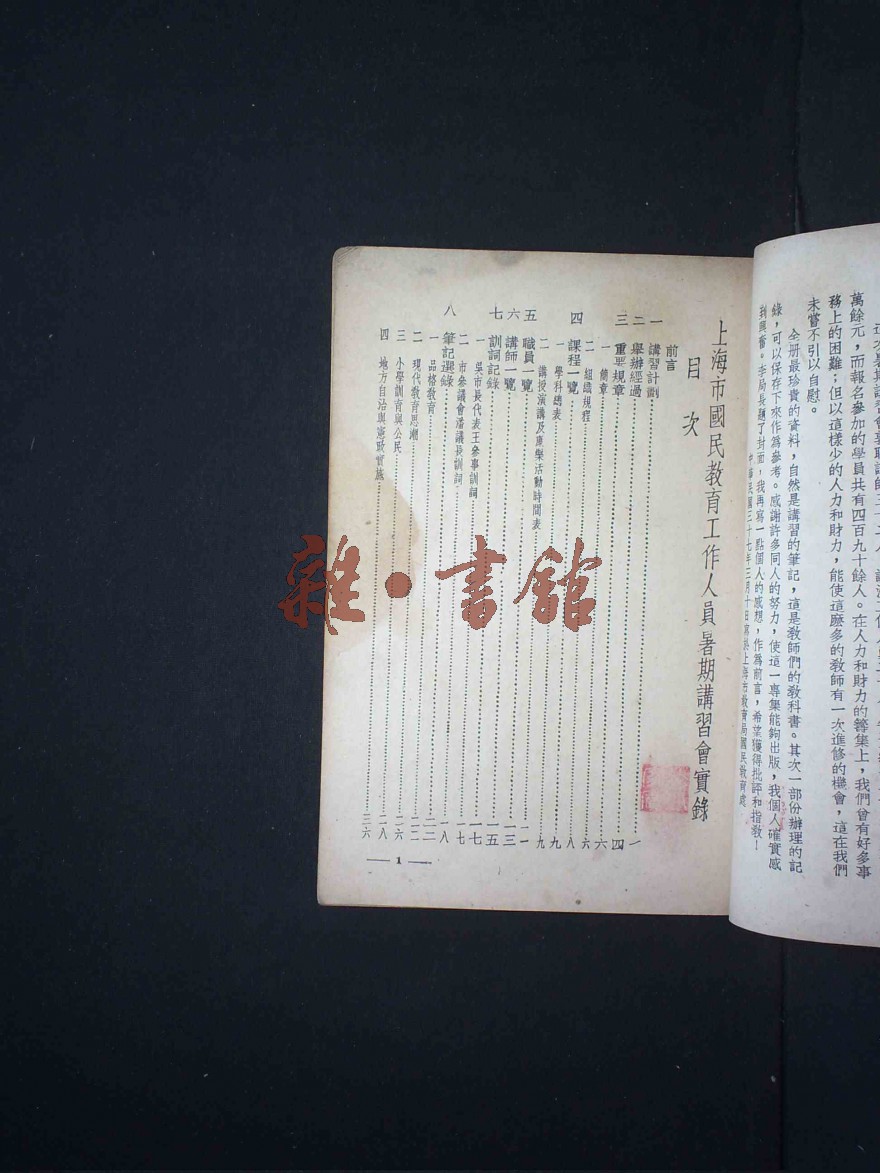 萬餘元，而報名參加的學員共有四百九十餘人。在人力和財力的籌集上，我們曾有好多事
務上的困難；但以這樣少的人力和財力，能使這麼多的敎師有一次進修的機會，這在我們
未嘗不引以自慰。
全册最珍貴的資料，自然是講習的筆記，這是敎師們的敎科書。其次一部份辦理的記
錄，可以保存下來作爲參考。感謝許多同人的努力，使這一專集能夠出版，我個人確實感
到興奮。李局長題了封面，我再寫一點個人的感想，作爲前言，希望獲得批評和指敎！
上海市國民教育工作人員暑期講習會實錄
目次
前言
一 講習計劃……一
二 舉辦經過……四
三 重要規章……六
一 簡章……六
二 組織規程……八
四 課程一覽……九
一 學科總表……九
二 講授演講及康樂活動時間表……一一
五 職員一覽……一三
六 講師一覽……一五
七 訓詞記錄……一七
一 吳市長代表王參事訓詞……一七
二 市參議會潘議長訓詞……一八
八 筆記選錄……
一 品格敎育……二二
二 現代敎育思潮……二六
三 小學訓育與公民……二八
四 地方自治與憲政實施……三六
— 1 —
雜·書館